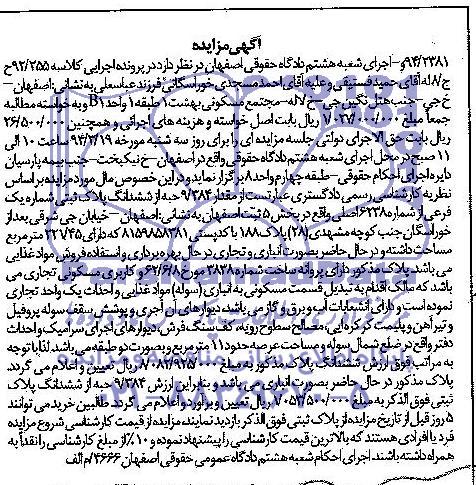 آگهی مزایده
۹۴/۲۳۸۱و-اجرای شعبه هشتم دادگاه حقوقی اصفهان در نظر دارد در پرونده اجرایی کلاسه ۹۲/۲۵۵ح
ج/۸ له آقای حمید فستیقی و علیه آقای احمد مسجدی خوراسگانی فرزند عباسعلی به نشانی: اصفهان-
خ جی-جنب هتل نگین جی-خ لاله-مجتمع مسکونی بهشت-طبقه ۱ واحد B۱ و به خواسته مطالبه
جمعاً مبلغ ریال بابت اصل خواسته و هزینه های اجرائی و همچنین ۲۶/۵۰۰/۰۰۰
ریال بابت حق الاجرای دولتی جلسه مزایده ای را برای روز سه شنبه مورخه ۹۴/۳/۱۹ ساعت ۱۰ الی
۱۱ صبح در محل اجرای شعبه هشتم دادگاه حقوقی واقع در اصفهان-خ نیکبخت-جنب بیمه پارسیان
دایره اجرای احکام حقوقی-طبقه چهارم واحد ۸ برگزار نماید و در این خصوص مال مورد مزایده بر اساس
نظریه کارشناسی رسمی دادگستری عبارتست از مقدار ۹/۳۸۴ حبه از ششدانگ پلاک ثبتی شماره یک
فرعی از شماره ۶۲۳۸ اصلی واقع در بخش ۵ ثبت اصفهان به نشانی: اصفهان-خیابان جی شرقی بعد از
خوراسگان جنب کوچه مشهدی (۲۸) پلاک ۱۸۸ با کدپستی ۸۱۵۹۸۵۸۳۸۱ که دارای ۲۲۷/۴۵ مترمربع
مساحت داشته و در حال حاضر بصورت انباری و تجاری در حال بهره برداری و استفاده فروش مواد غذایی
می باشد. پلاک مذکور دارای پروانه ساخت شماره ۳۸۳۸ مورخ ۶۲/۶/۸ و کاربری مسکونی تجاری می
باشد که مالک اقدام به تبدیل قسمت مسکونی به انباری (سوله) مواد غذایی و احداث یک واحد تجاری
نموده است و دارای انشعابات آب و برق و گاز می باشد، دیوارهای آن آجری و پوشش سقف سوله پروفیل
و تیرآهن و پلیمت کرکره ای، مصالح سطوح رویه، کف سنگ فرش، دیوارهای اجرای سرامیک و احداث
دفتر واقع در ضلع شمال سوله و مساحت عرصه حدود ۱۱ مترمربع و بصورت دو طبقه می باشد. لذا با توجه
به مراتب فوق ارزش ششدانگ پلاک مذکور به مبلغ ریال تعیین و اعلام می گردد.
پلاک مذکور در حال حاضر بصورت انباری می باشد و بنابراین ارزش ۹/۳۸۴ حبه از ششدانگ پلاک
ثبتی فوق الذکر به مبلغ ریال تعیین و برآورد و اعلام می گردد. طالبین خرید می توانند
۵ روز قبل از تاریخ مزایده از پلاک ثبتی فوق الذکر بازدید نمایند مزایده از قیمت کارشناسی شروع مزایده
فرد یا افرادی هستند که بالاترین قیمت کارشناسی را پیشنهاد نموده و ۱۰٪ از مبلغ کارشناسی را نقداً به
همراه داشته باشند. اجرای احکام شعبه هشتم دادگاه عمومی حقوقی اصفهان ۴۶۶۶/م الف